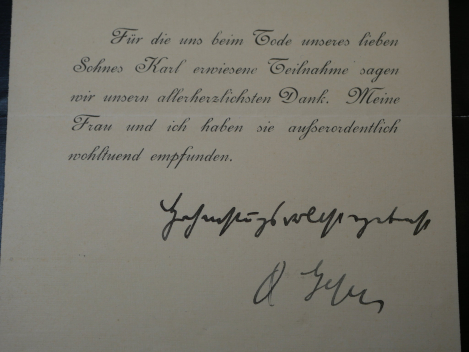 Für die uns beim Tode unseres lieben
Sohnes Karl erwiesene Teilnahme sagen
wir unsern allerherzlichsten Dank. Meine
Frau und ich haben sie außerordentlich
wohltuend empfunden.